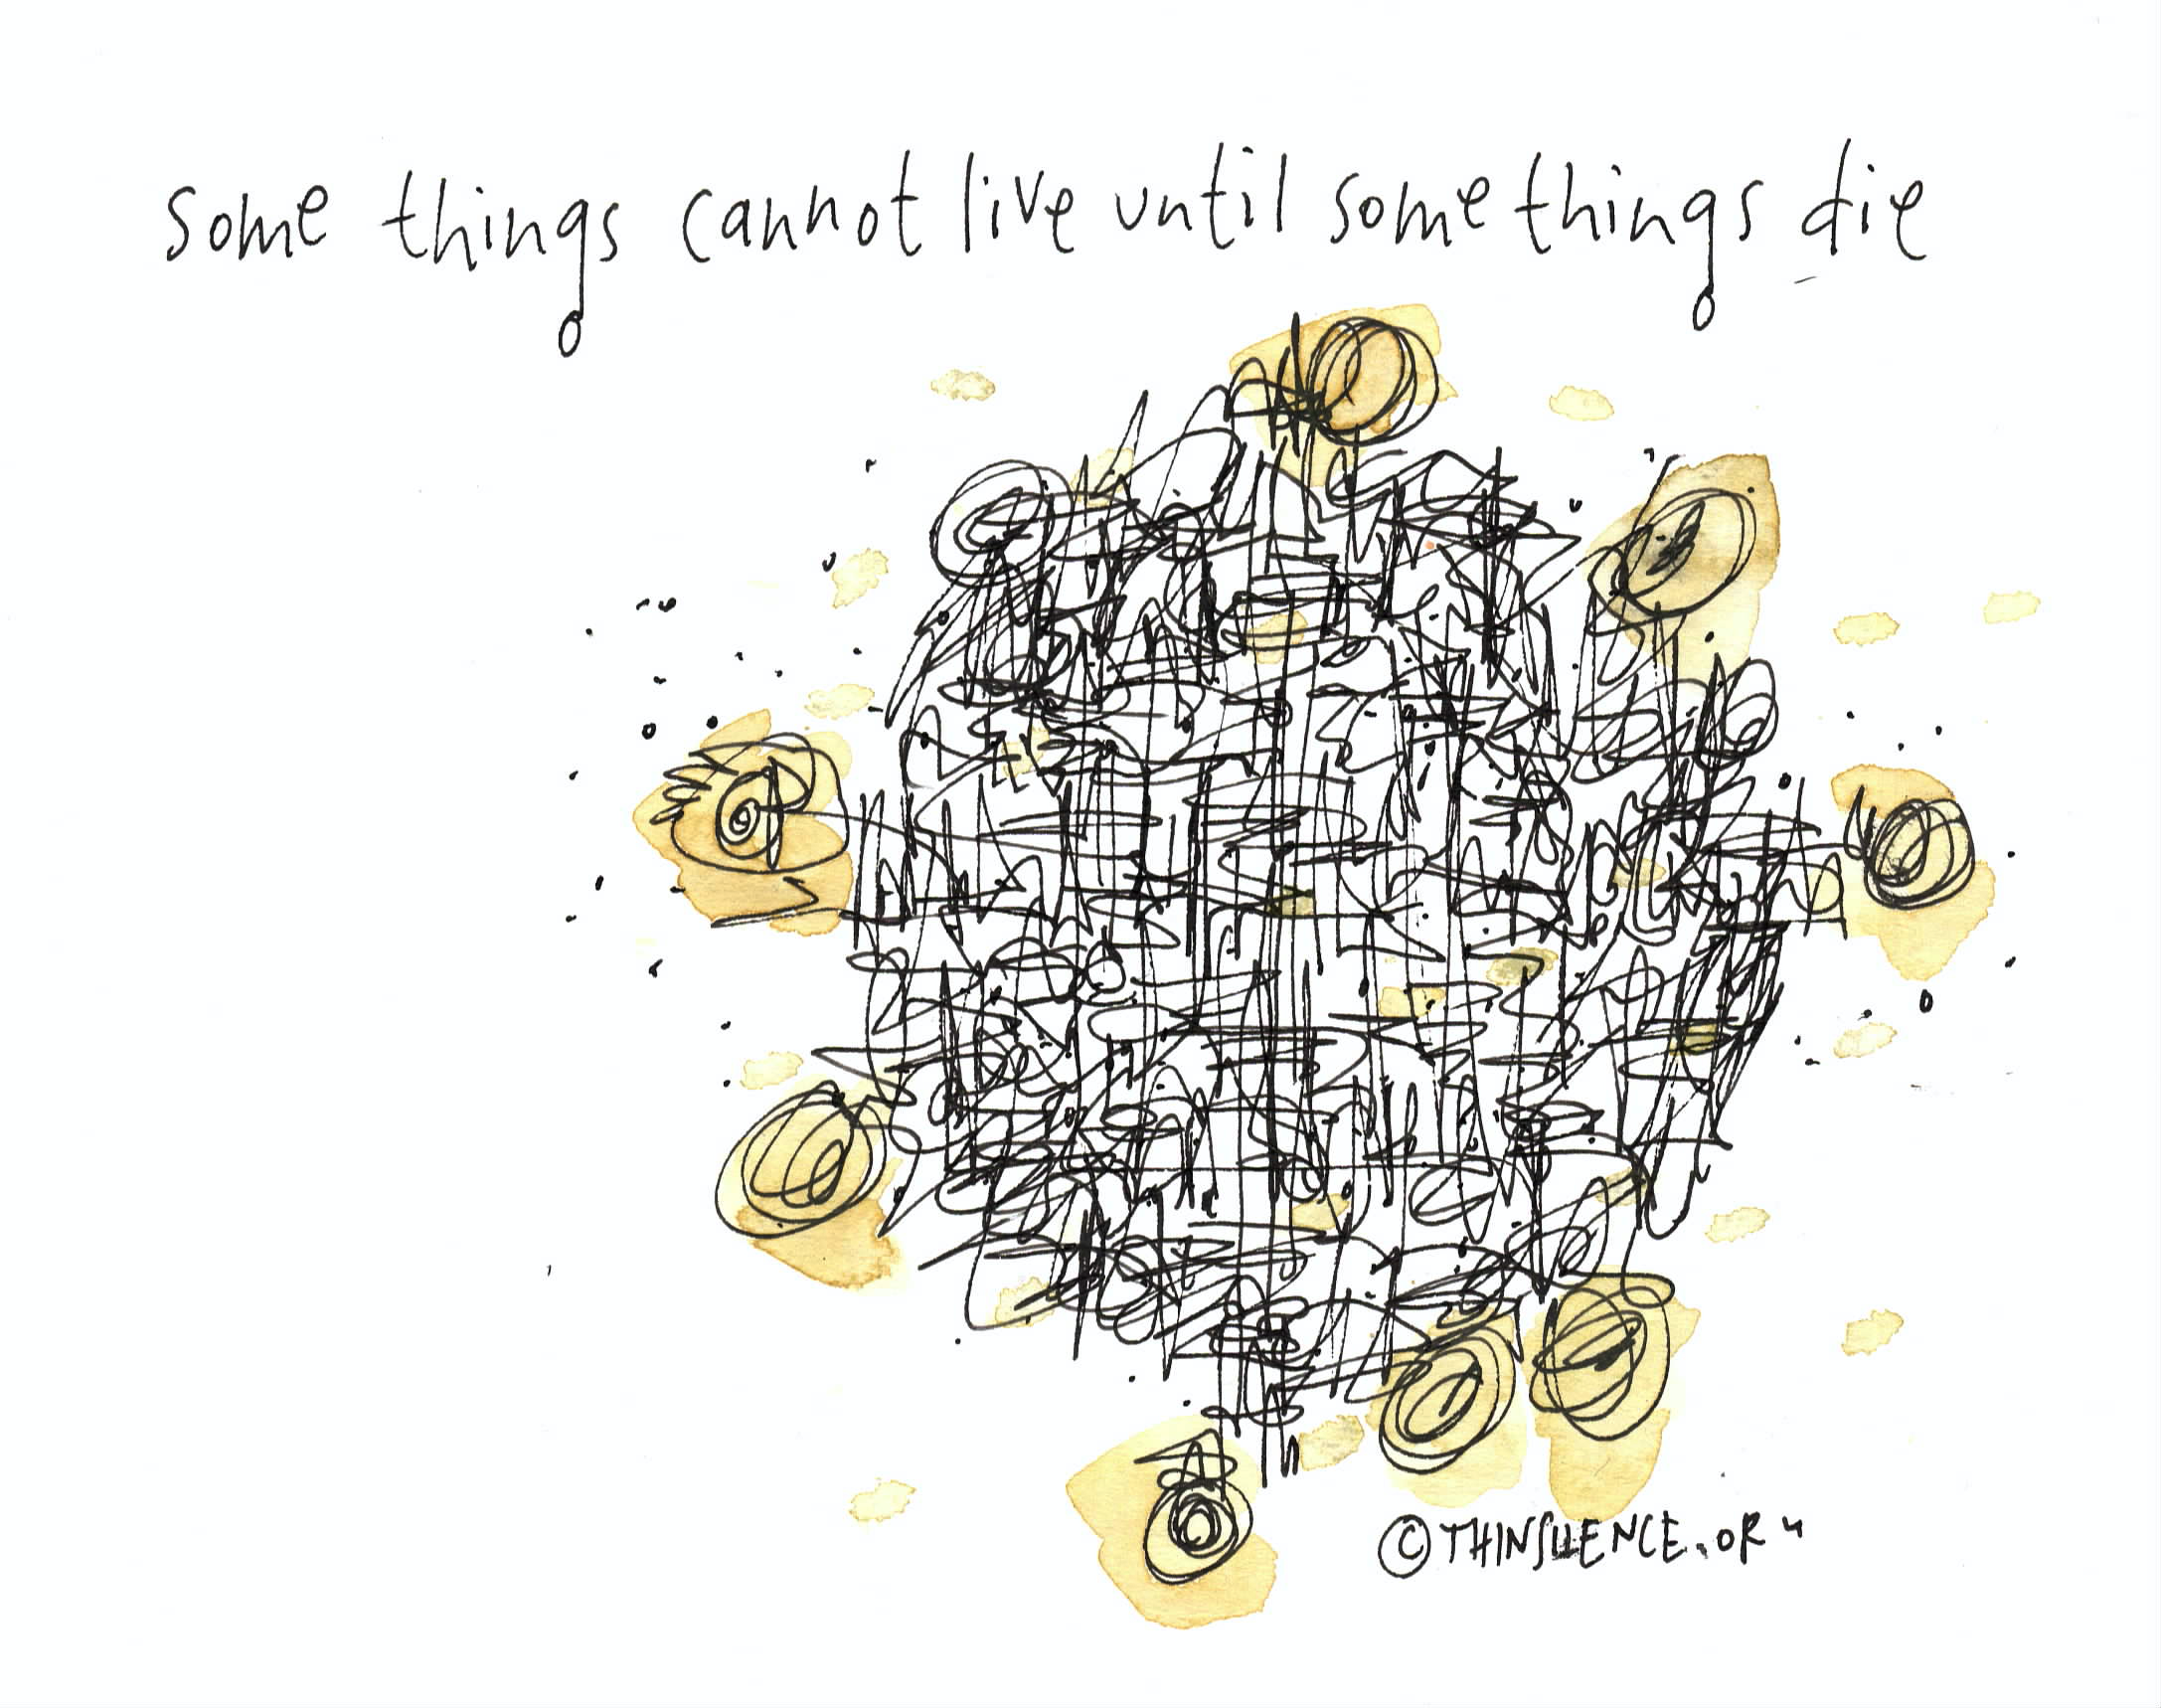 some things cannot live until some things die
© THINSILENCE.OR4